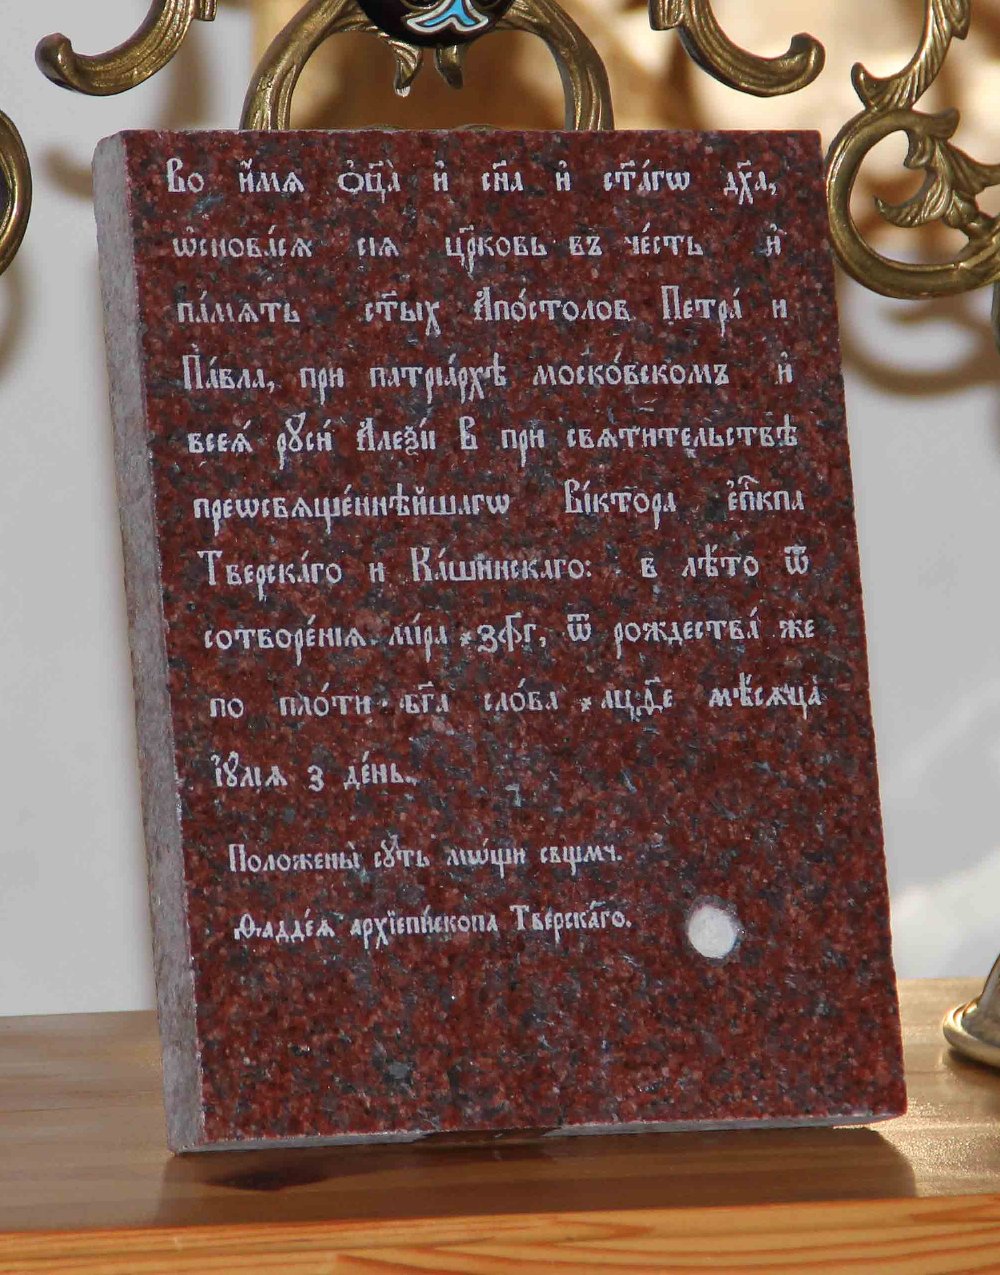 Во и҆́мѧ ѻ҆ц҃а̀ и҆ сн҃а и҆ ст҃а́гѡ дх҃а,
ѡ҆снова́сѧ сїѧ цр҃ковь въ че́сть и҆
па́мѧть ст҃ых А҆по́столов Петра́ и
Па́вла, при патрїа́рхѣ моско́вскомъ и҆
всеѧ́ рꙋси́ Алеѯі́и В при свѧти́тельствѣ
преѡсвѧще́ннѣйшагѡ Ві́ктора є҆пⷭ҇кпа
Тверска́го и Ка́шинскаго: в лѣ́то ѿ
сотворе́нїѧ мі́ра ҂зф҃г, ѿ рождества́ же
по пло́ти бг҃а сло́ва ҂ацд҃е мѣ́сѧца̀
і҆ꙋ́лїѧ з де́нь.
Положены̀ сꙋ́ть мѡ́щи сщ҃мч.
Ѳадде́ѧ архїепи́скопа Тверска́го.